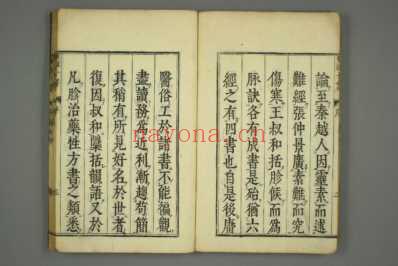 論至秦越人因靈素而述
難經張仲景廣素難而究
傷寒王叔和括胗候而爲
脉訣各有成書是殆猶六
經之有四書也自是後庸
醫俗工於諸書不能徧觀
盡讀務爲近利漸趨苟簡
其稍有所見好名於世者
復因叔和櫽括韻語又於
凡胗治藥性方書之類悉
nayona.cn